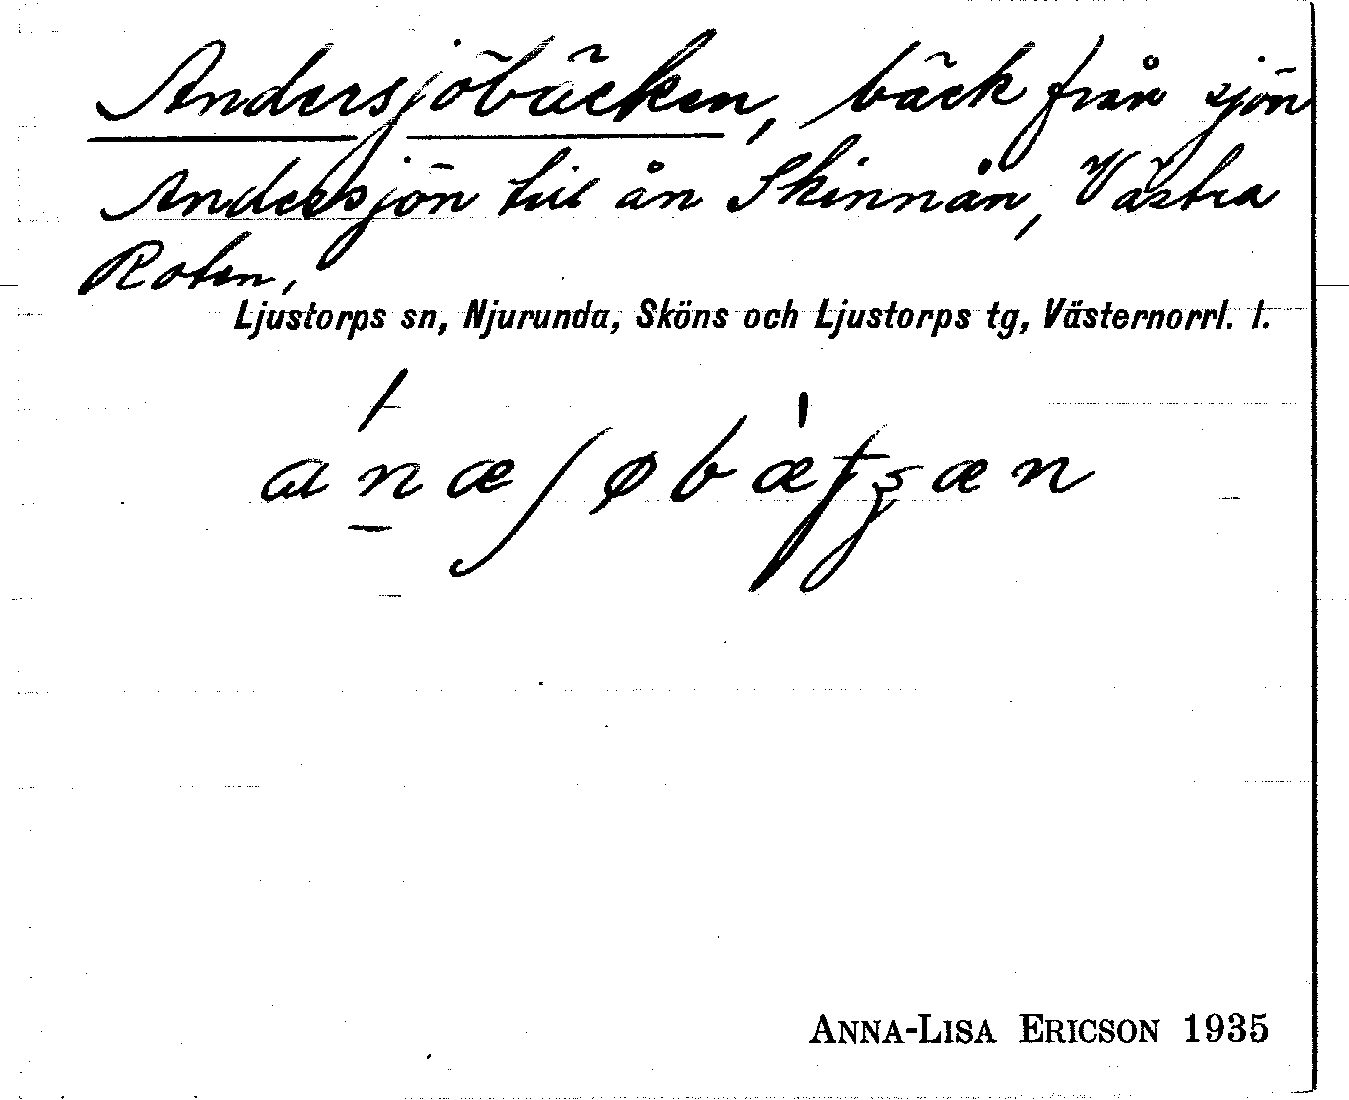 Andersjöbäcken, bäck från sjön
Andersjön till ån Skinnån, Västra
Roten,
Ljustorps sn, Njurunda, Sköns och Ljustorps tg, Västernorrl. l.
ANNA-LISA ERICSON 1935